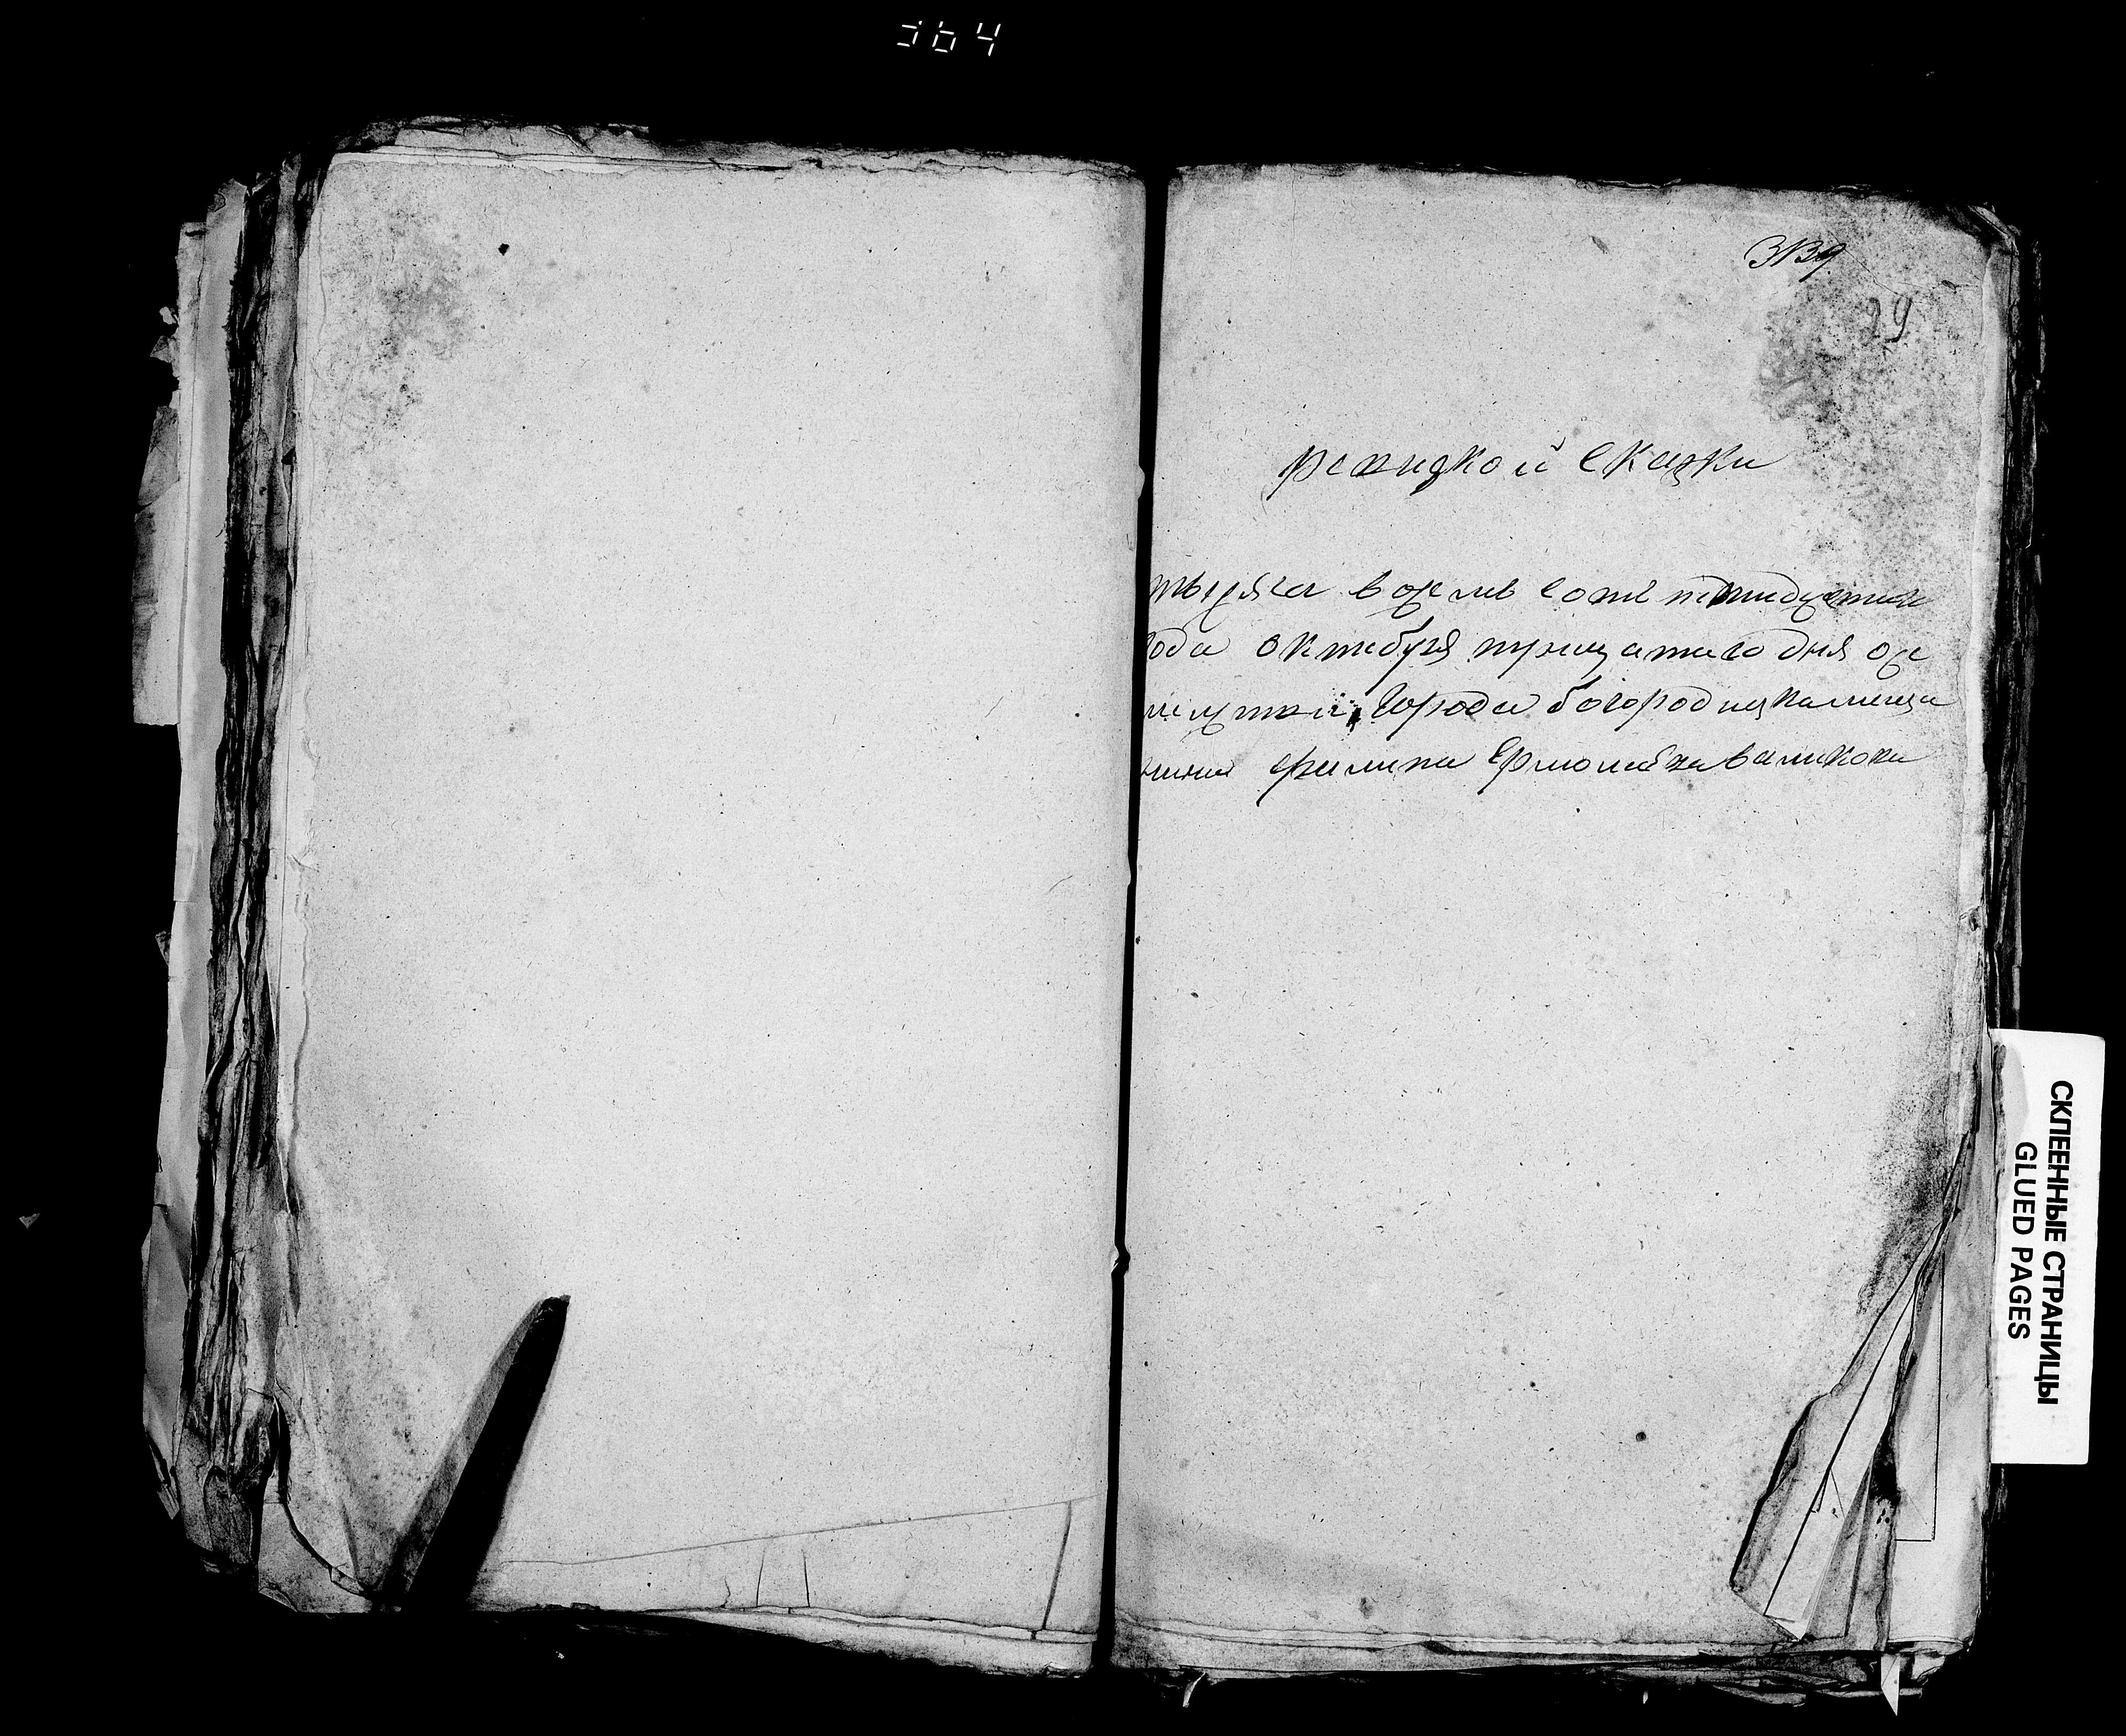 364
29
ревизкой сказки
тысяча восемь сотъ пятидесятаго
года октября трицатаго дня
города богородицка меща
нина филипа Ермолаева
СКЛЕЕННЫЕ СТРАНИЦЫ
GLUED PAGES